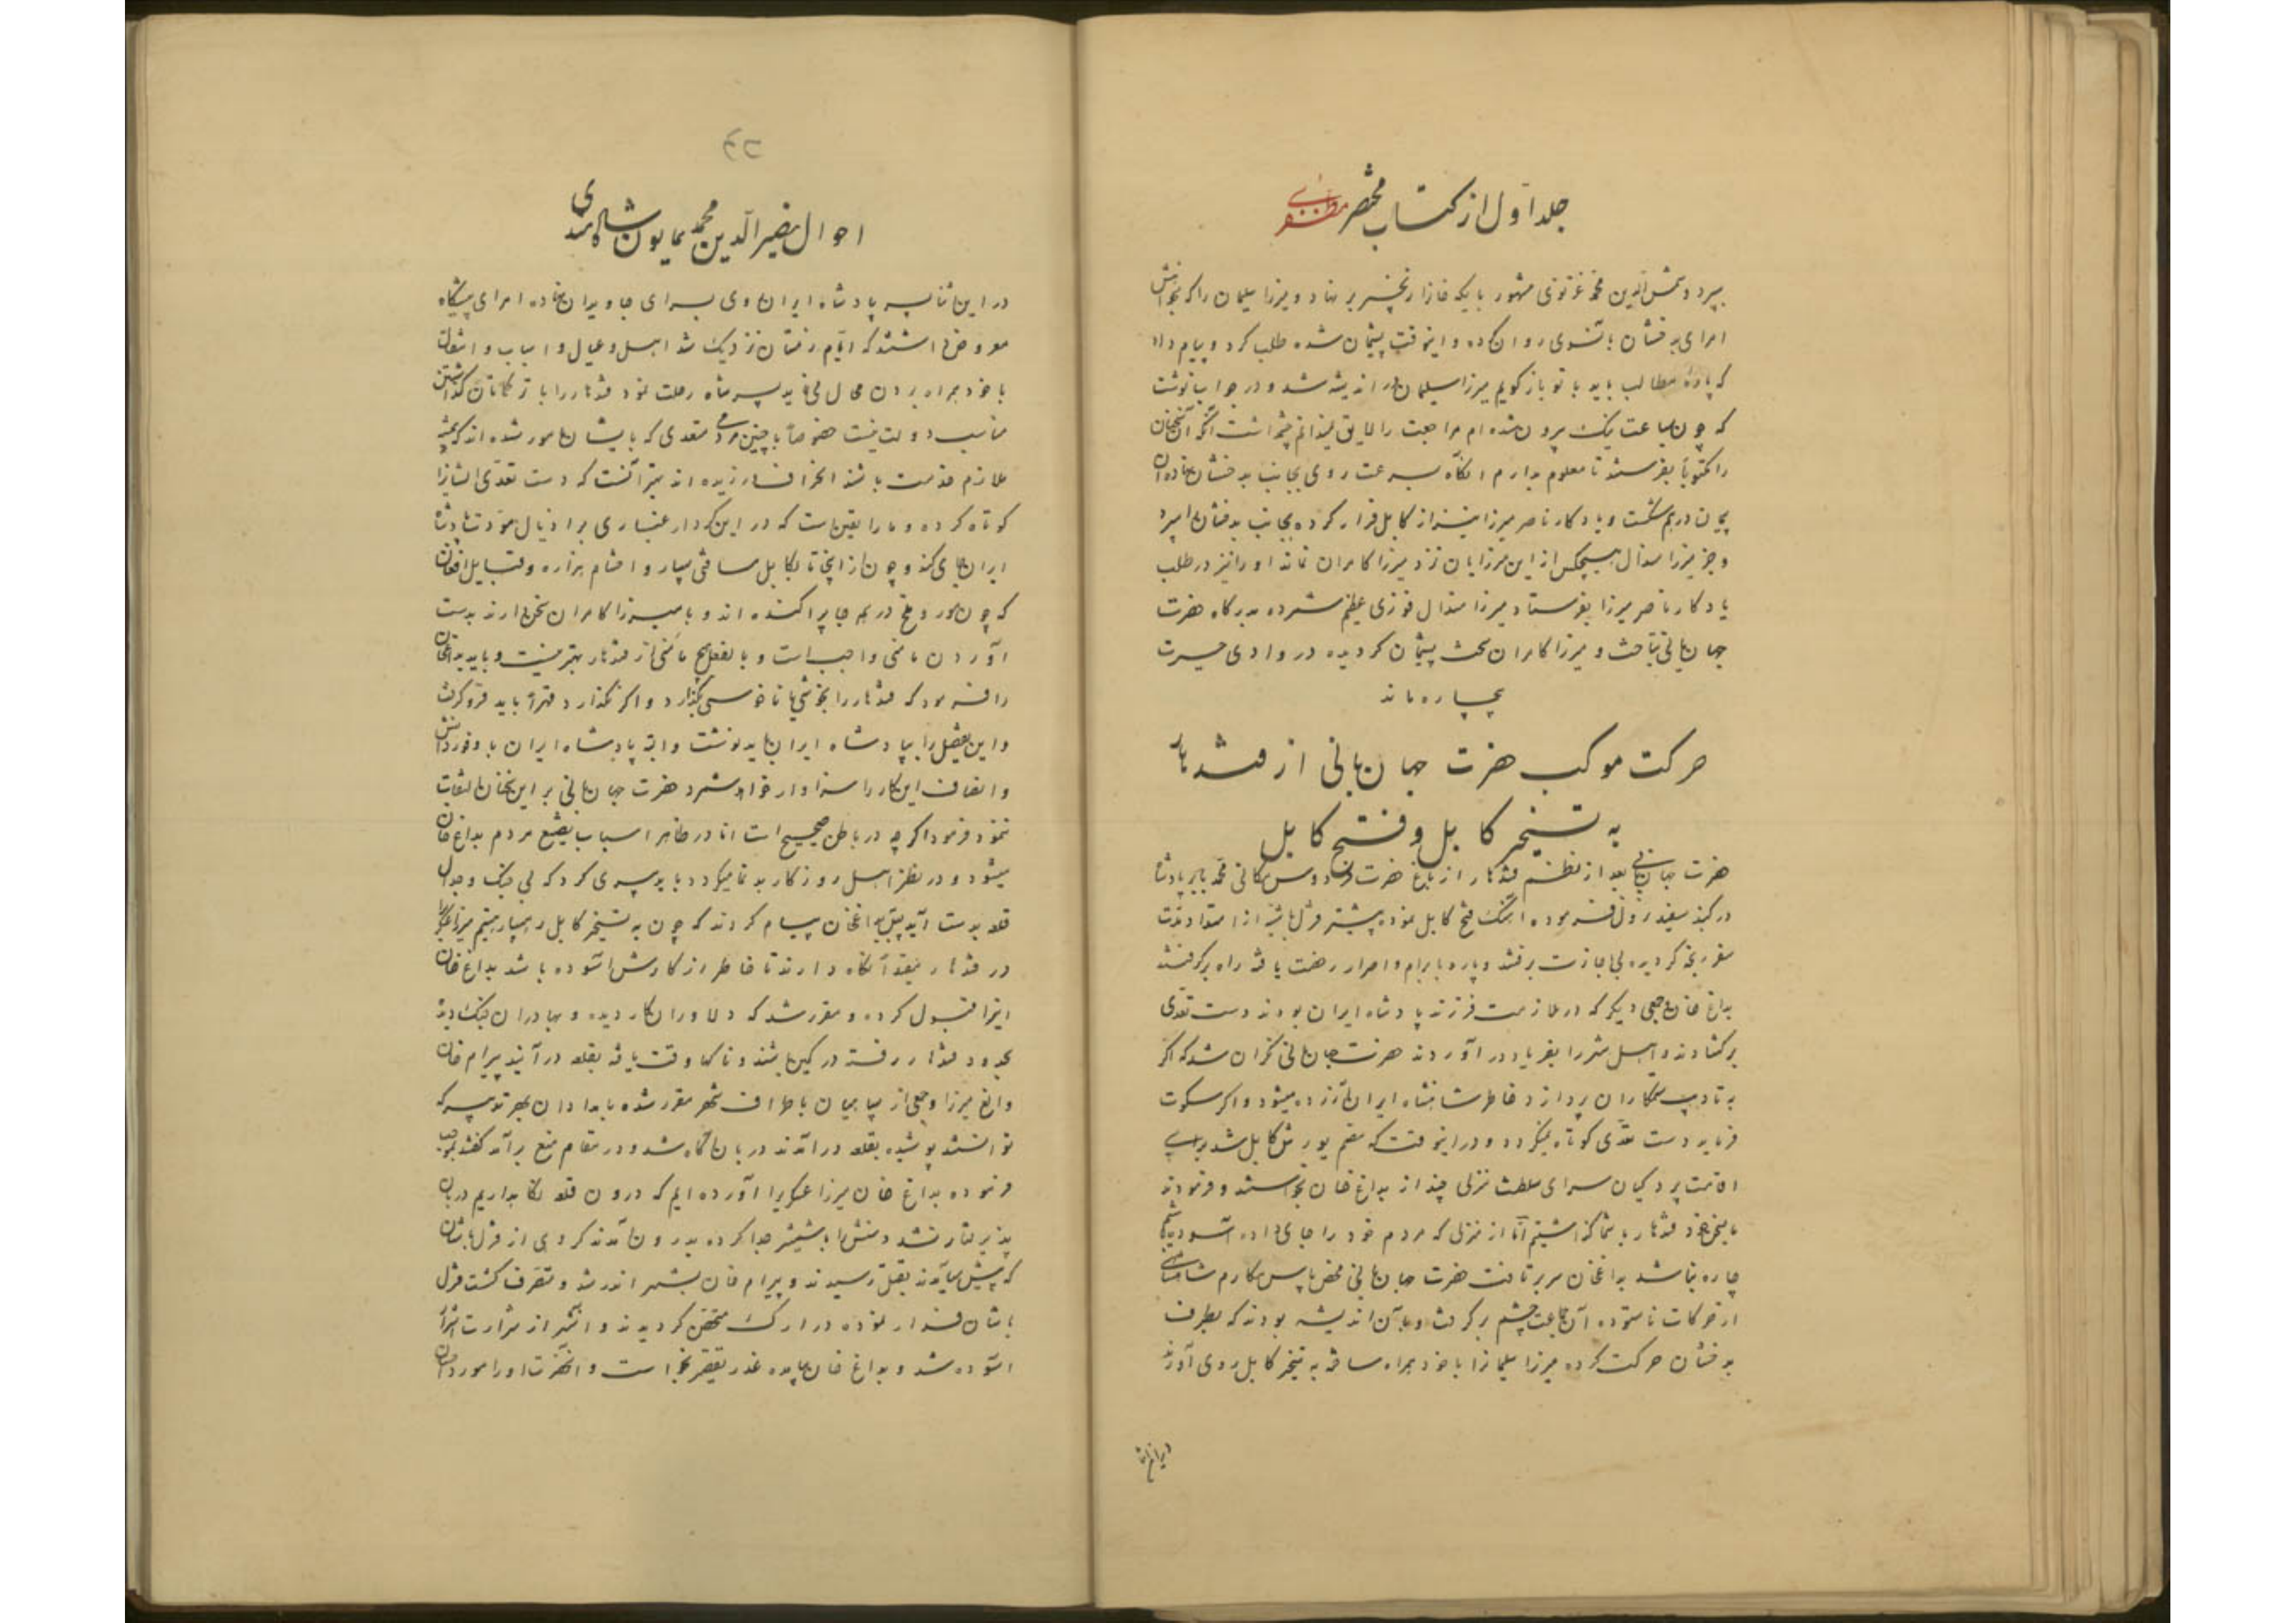 جلد اول از کتاب مختصر مظفری
بسپرد و شمس الدین محمد غزنوی مشهور باتکه خانرا بخنجر بر نهاد و میرزا سلیمان را که بخواهش
امرای بدخشان بآنسوی روان کرده و اینوقت پشیمان شده طلب کرد و پیام داد
که پاره مطالب باید با تو باز گویم میرزا سلیمان در اندیشه شد و در جواب نوشت
که چون بساعت نیک بیرون شده ام مراجعت را لایق نمیدانم چشمداشت آنکه آن سخنان
را مکتوباً بفرستند تا معلوم بدارم آنگاه بسرعت روی بجانب بدخشان نهاده آن
پیمان درهم شکست و یادگار ناصر میرزا نیز از کابل فرار کرده بجانب بدخشان راه سپرد
و جز میرزا هندال هیچکس از این میرزایان نزد میرزا کامران نماند او را نیز در طلب
یادگار ناصر میرزا بفرستاد میرزا هندال فوزی عظیم شمرده بدرگاه حضرت
جهان بانی بتاخت و میرزا کامران سخت پشیمان گردیده در وادی حیرت
بیچاره ماند
حرکت موکب حضرت جهان بانی از قندهار
به تسخیر کابل و فتح کابل
حضرت جهان بانی بعد از نظم قندهار از باغ حضرت فردوس مکانی محمد بابر پادشاه
در گنبد سفید نزول فرموده آهنگ فتح کابل نموده بیشتر قزلباشیه از امتداد مدت
سفر رنجه گردیده بی اجازت برفتند و پاره بابرام و اصرار رخصت یافته راه برگرفتند
بداغ خان و جمعی دیگر که در ملازمت فرزند پادشاه ایران بودند دست تعدی
برگشادند و اهل شهر را بفریاد درآوردند حضرت جهان بانی نگران شد که اگر
به تادیب ستمکاران پردازد خاطر شاهنشاه ایران آزرده میشود و اگر سکوت
فرماید دست تعدی کوتاه نمیگردد و در اینوقت که مصمم یورش کابل شد برای
اقامت پردگیان سرای سلطنت منزلی چند از بداغ خان بخواستند و فرمودند
ما بمیل خود قندهار بشما گذاشتیم اما از منزلی که مردم خود را جای داده آسوده باشیم
چاره نباشد بداغخان سر بر تافت حضرت جهان بانی محض پاس مکارم شاهنشاهی
از حرکات ناستوده آن جماعت چشم بر گرفت و بر آن اندیشه بودند که بطرف
بدخشان حرکت کرده میرزا سلیمانرا با خود همراه ساخته به تسخیر کابل روی آورند
در این اثنا
۵۳
احوال نصیر الدین محمد همایون شاه هندی
در این اثنا پسر پادشاه ایران روی بسرای جاویدان نهاده امرای پیشگاه
معروض داشتند که ایام زمستان نزدیک شد اهل و عیال و اسباب و اثقال
با خود همراه بردن محال می نماید پسر شاه رحلت نمود قندهار را با ترکمانان گذاشتن
مناسب دولت نیست خصوصاً با چنین مردمی متعدی که با ایشان مامور شده اند که همیشه
ملازم خدمت باشند انحراف ورزیده اند بهتر آنست که دست تعدی ایشانرا
کوتاه کرده و ما را یقین است که در این کردار غباری بر اذیال مودت پادشاه
ایران جای نمی کند و چون از اینجا تا بکابل مسافتی بسیار و احشام هزاره و قبایل افغان
که چون مور و ملخ در همه جا پراکنده اند و با میرزا کامران سخن دارند بدست
آوردن مامنی واجب است و بالفعل هیچ مامنی از قندهار بهتر نیست و باید بداغخان
را فرمود که قندهار را بخوشی یا ناخوشی بگذارد و اگر نگذارد قهراً باید فرو گرفت
و این تفصیل را بپادشاه ایران باید نوشت و البته پادشاه ایران با وفور دانش
و انصاف این کار را سزاوار خواهد شمرد حضرت جهان بانی بر این سخنان التفات
ننمود فرمود اگر چه در باطن صحیح است اما در ظاهر اسباب تضییع مردم بداغ خان
میشود و در نظر اهل روزگار بدنما میگردد باید تدبیری کرد که بی جنگ و جدال
قلعه بدست آید پس ببداغخان پیام کردند که چون به تسخیر کابل رهسپاریم میرزا عسکری را
در قندهار مقید نگاه دارند تا خاطر از کارش آسوده باشد بداغ خان
اینرا قبول کرده و مقرر شد که دلاوران کار دیده و بهادران جنگ دیده
بحدود قندهار رفته در کمین باشند و ناگاه وقت یافته بقلعه درآیند بیرام خان
و الغ میرزا و جمعی از سپاهیان باطراف شهر مقرر شده بامدادان بهر تدبیر که
توانستند پوشیده بقلعه درآمدند دربان آگاه شد و در مقام منع برآمد گفتند بموجب
فرموده بداغ خان میرزا عسکریرا آورده ایم که درون قلعه نگاه بداریم دربان
پذیرفتار نشد دستش را بشمشیر جدا کرده بدرون آمدند گروهی از قزلباشان
که پیش میآمدند بقتل رسیدند و بیرام خان بشهر اندر شد و متصرف گشت قزل
باشان فرار نموده در ارک متحصن گردیدند و آنشهر از شرارت اشرار
آسوده شد و بداغ خان بیامده عذر تقصیر بخواست و آنحضرت او را مورد احسان